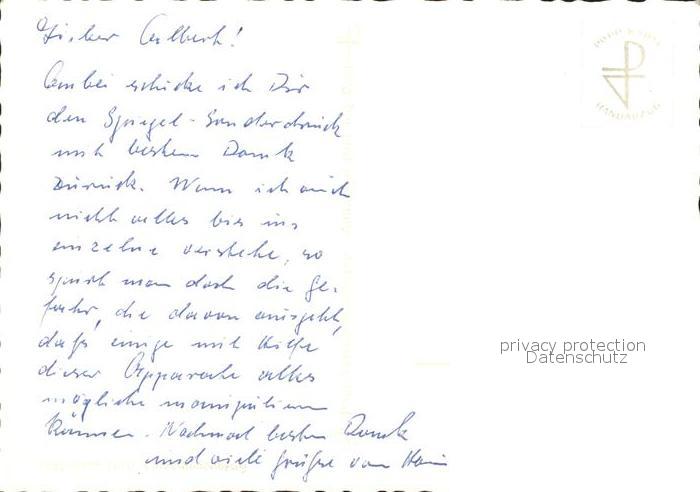 Lieber Albert!
Anbei schicke ich Dir
den Spiegel-Sonderdruck
mit bestem Dank
zurück. Wenn ich auch
nicht alles bis ins
einzelne verstehe, so
spürt man doch die Ge-
fahr, die davon ausgeht,
daß einige mit Hilfe
dieser Apparate alles
mögliche manipulieren
können. Nochmal besten Dank
und viele Grüße von
POPP-KARTE
HANDABZUG
privacy protection
Datenschutz